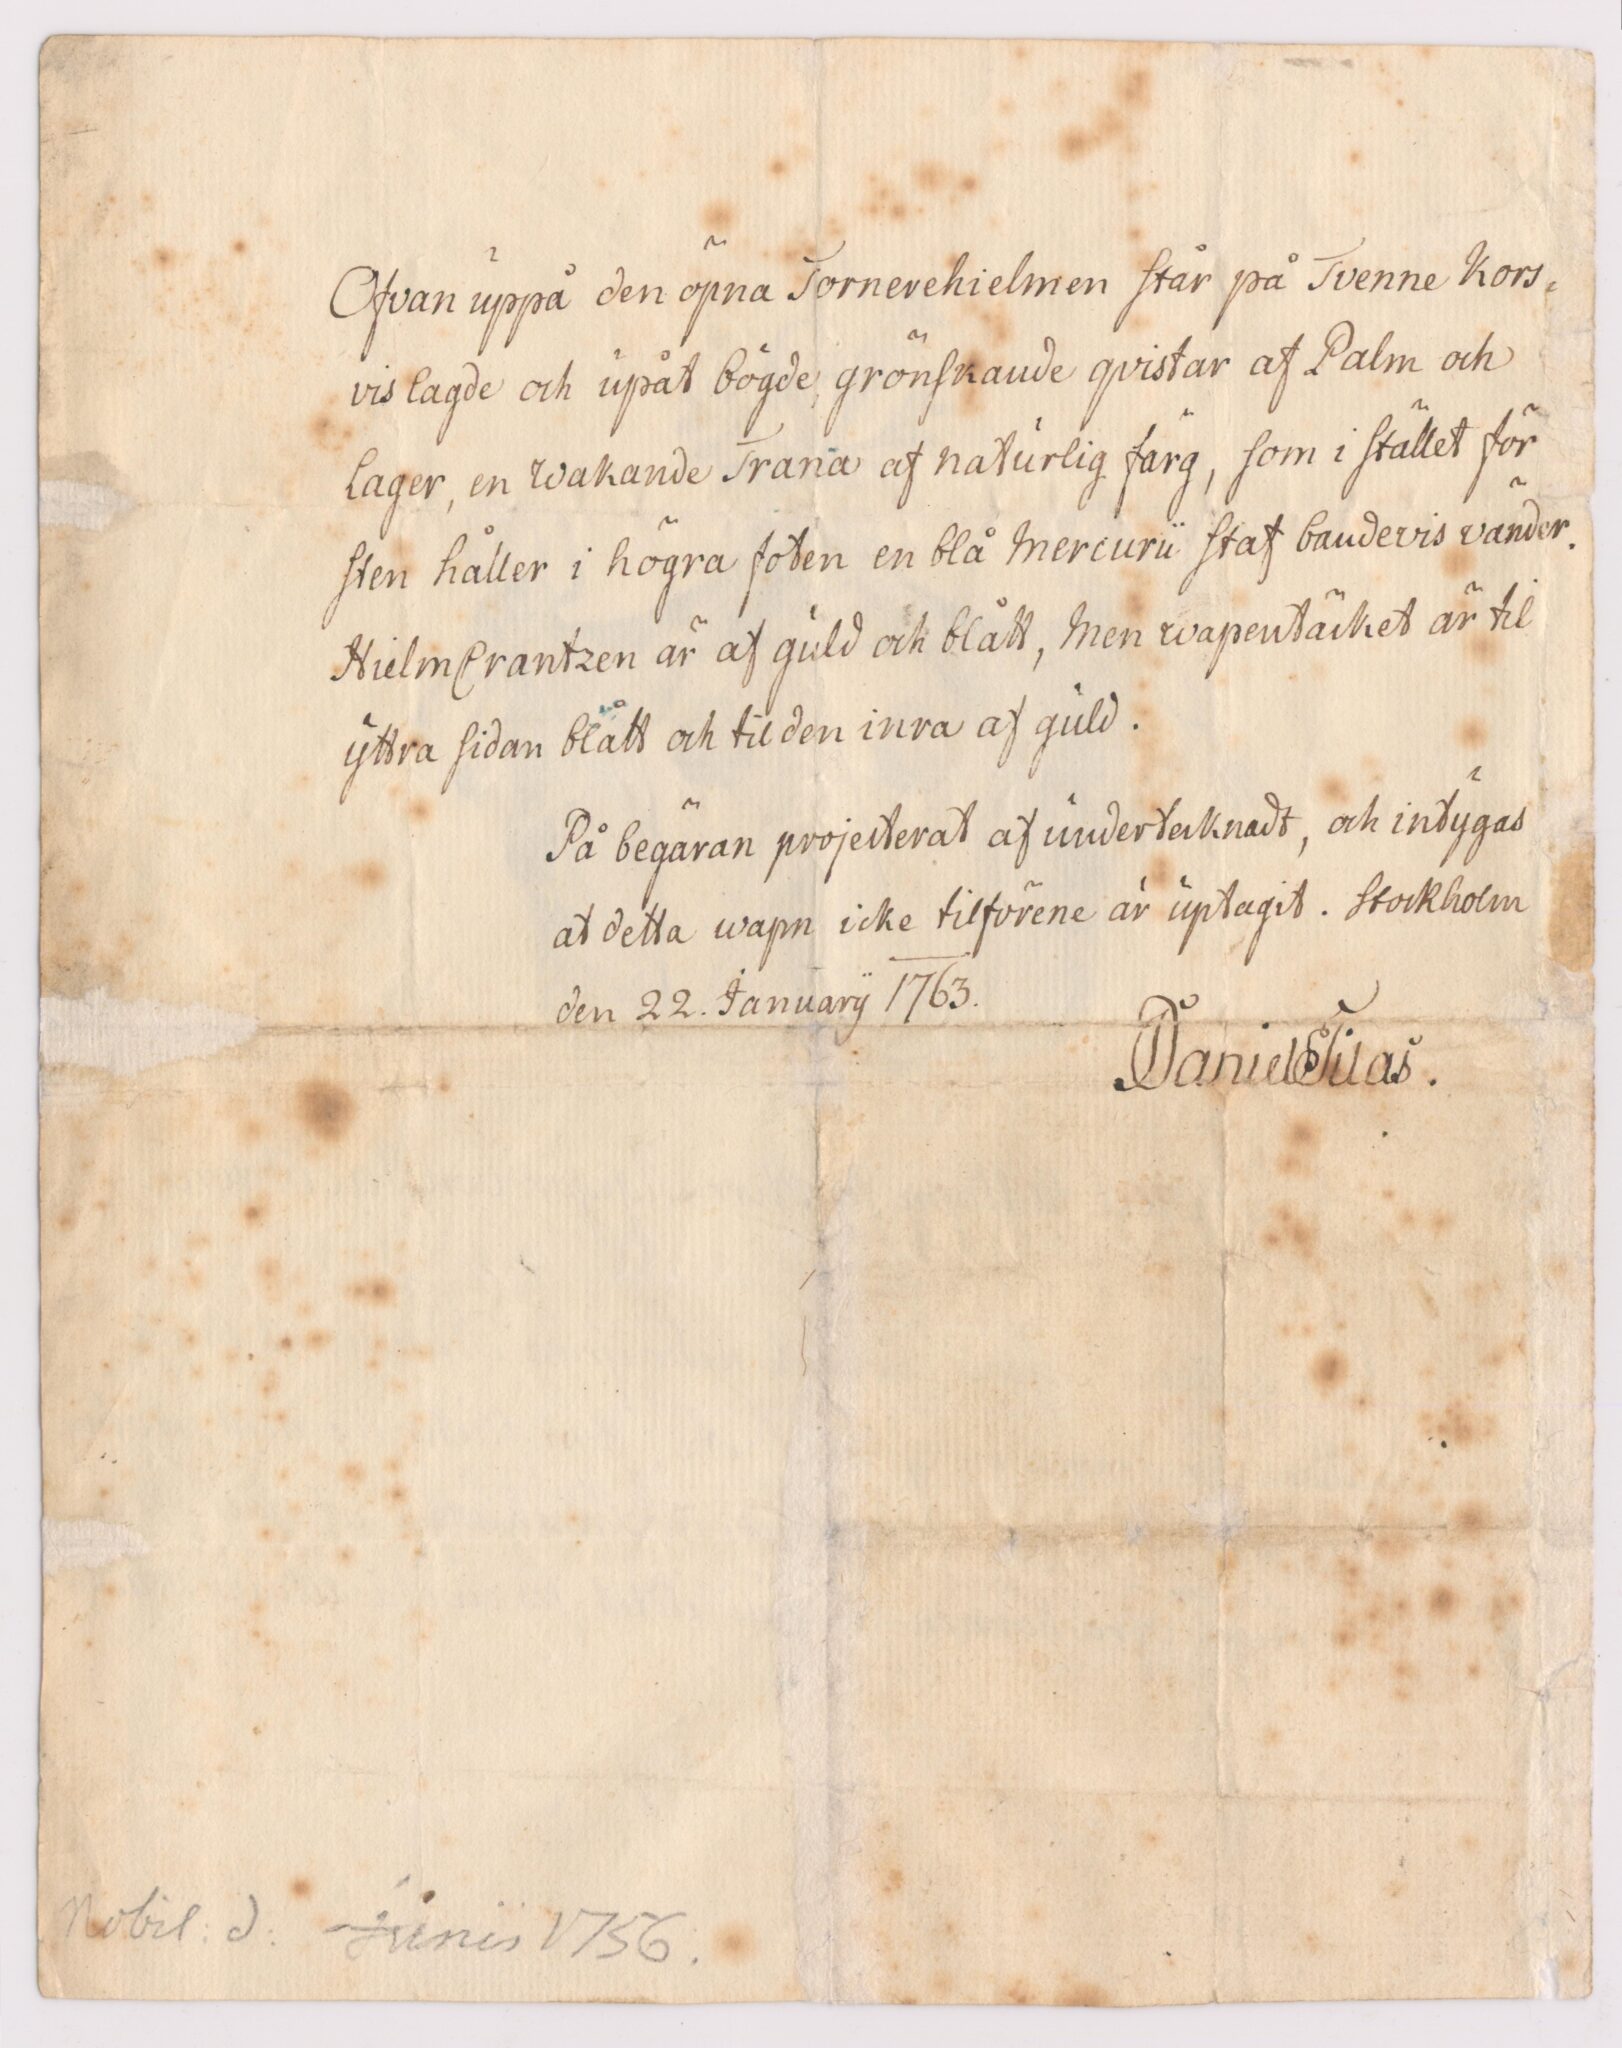 Ofvan uppå den öpna Tornerehielmen står på Tvenne Kors-
vis lagde och upåt bögde, grönskande qvistar af Palm och
Lager, en wakande Trana af naturlig färg, som i stället för
sten håller i högra foten en blå Mercurii staf bandevis vänder.
HielmCrantzen är af guld och blått, Men wapentäcket är til
yttra sidan blått och til den inra af guld.
På begäran projecterat af undertecknadt, och intygas
at detta wapn icke tilförene är uptagit. Stockholm
den 22. January 1763.
Daniel Tilas.
Nobil: d. Junii 1756.